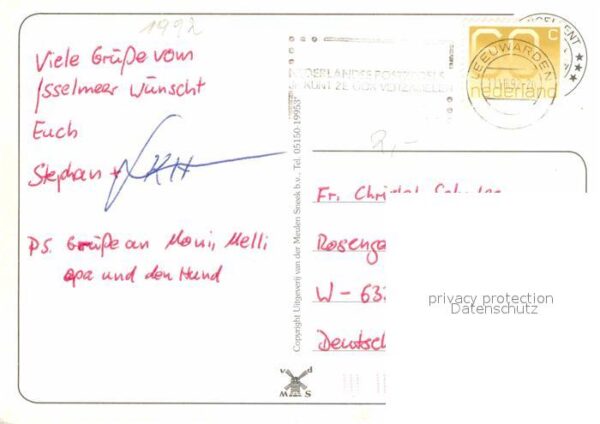 1992
Viele Grüße vom
Isselmeer wünscht
Euch
Stephan +
PS. Grüße an Moni, Melli
opa und den Hund
Copyright Uitgeverij van der Meulen Sneek b.v., Tel. 05150-19953
NEDERLANDSE POSTZEGELS
JE KUNT ZE OOK VERZAMELEN
LEEUWARDEN
60 c
nederland
2,-
Fr. Christel
Rosenga
W - 633
Deutsch
privacy protection
Datenschutz
v d
W S